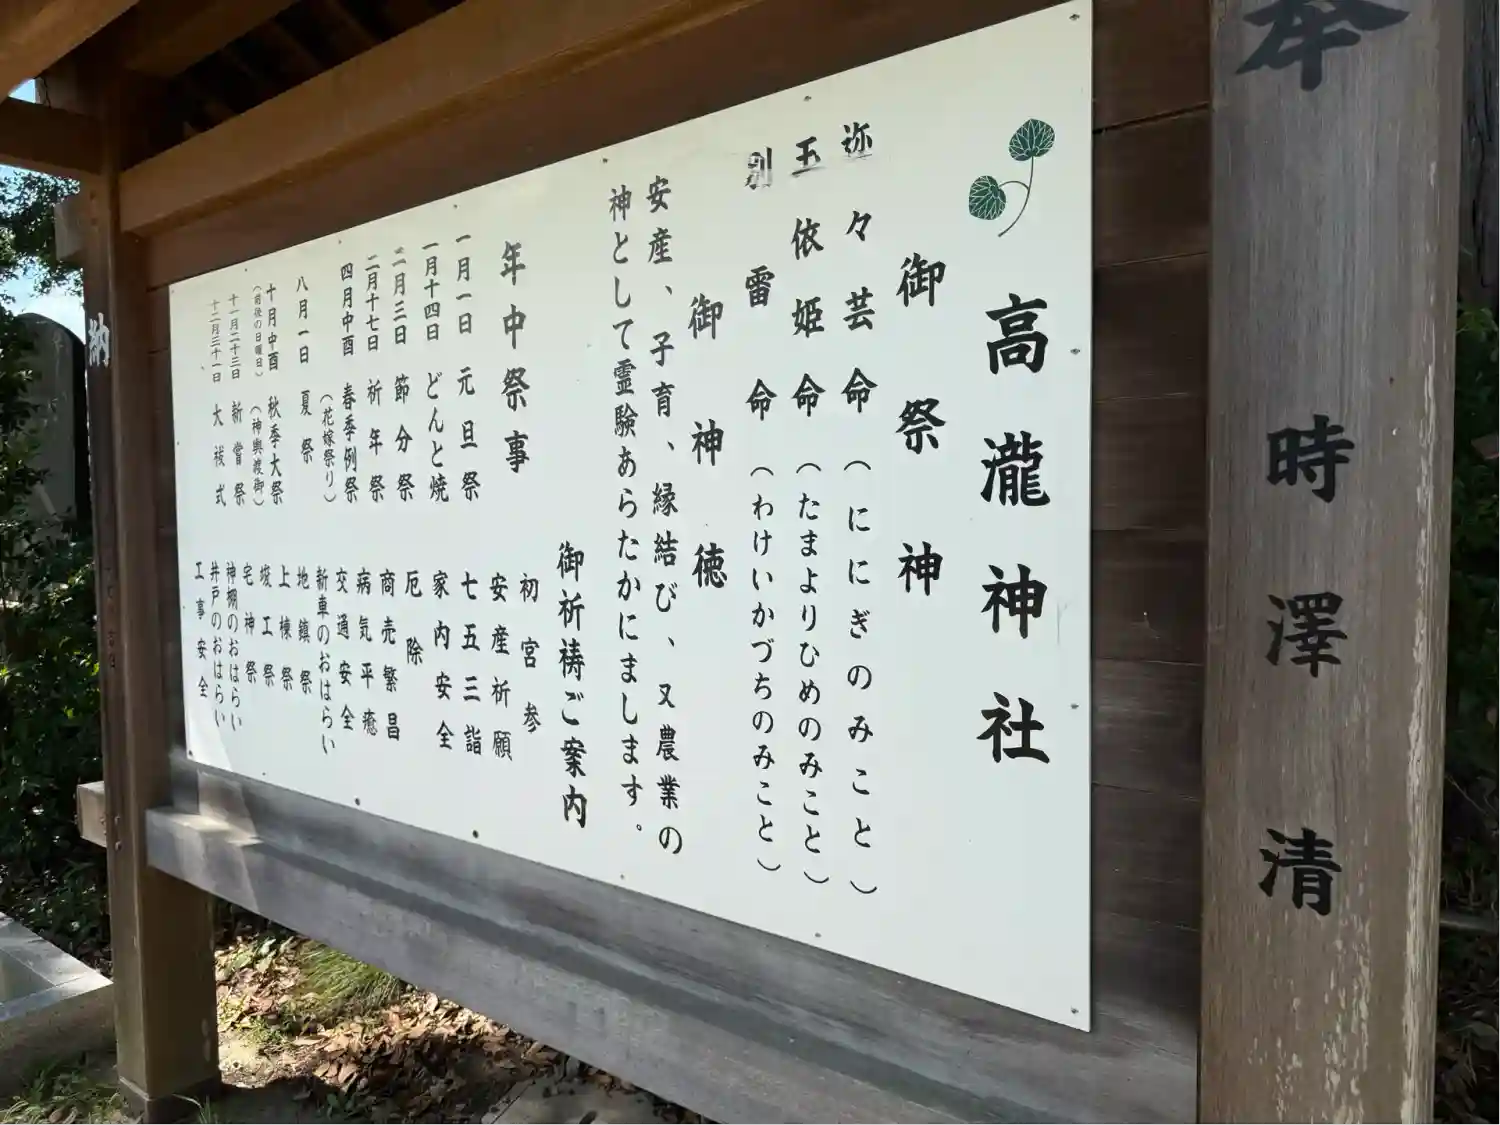 奉
時澤清
納
高瀧神社
御祭神
迩々芸命（ににぎのみこと）
玉依姫命（たまよりひめのみこと）
別雷命（わけいかづちのみこと）
御神徳
安産、子育、縁結び、又農業の
神として霊験あらたかにまします。
年中祭事
一月一日 元旦祭
一月十四日 どんと焼
二月三日 節分祭
二月十七日 祈年祭
四月中酉 春季例祭
（花嫁祭り）
八月一日 夏祭
十月中酉 秋季大祭
（前後の日曜日）（神輿渡御）
十一月二十三日 新嘗祭
十二月三十一日 大祓式
御祈祷ご案内
初宮参
安産祈願
七五三詣
家内安全
厄除
商売繁昌
病気平癒
交通安全
新車のおはらい
地鎮祭
上棟祭
竣工祭
宅神祭
神棚のおはらい
井戸のおはらい
工事安全